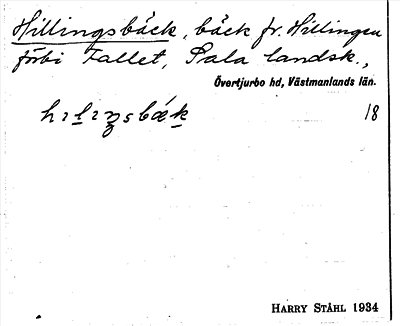 Hillingsbäck, bäck fr. Hillingen
förbi Fallet, Sala landsk.,
Övertjurbo hd, Västmanlands län.
18
HARRY STÅHL 1934